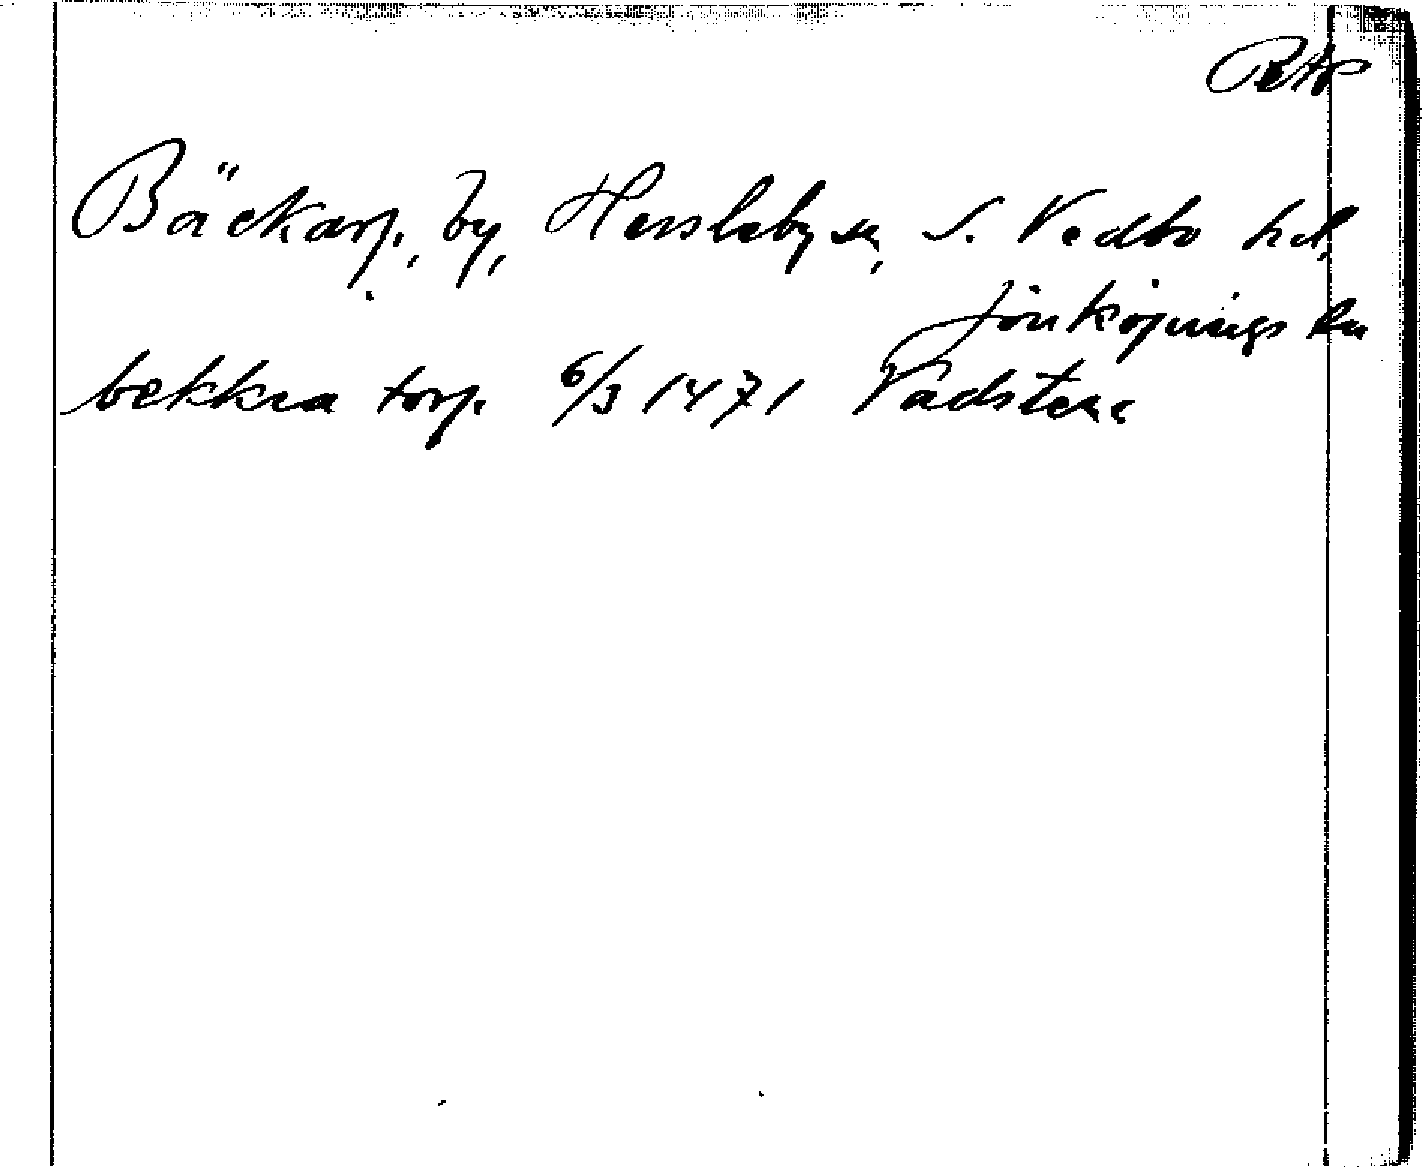 Bäckarp, by, Hessleby sn, S. Vedbo hd,
Jönköpings län
bekkra torp 6/3 1471 Vadstena